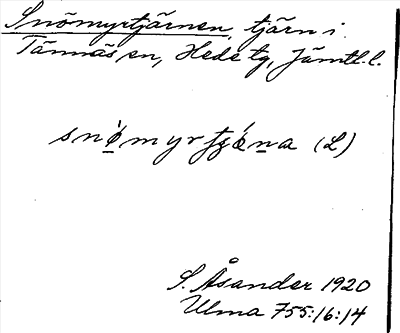 Snömyrtjärnen, tjärn i
Tännäs sn, Hede tg, Jämtl. l.
snö̀myrtjǽna (L)
S. Åsander 1920
Ulma 755:16:14